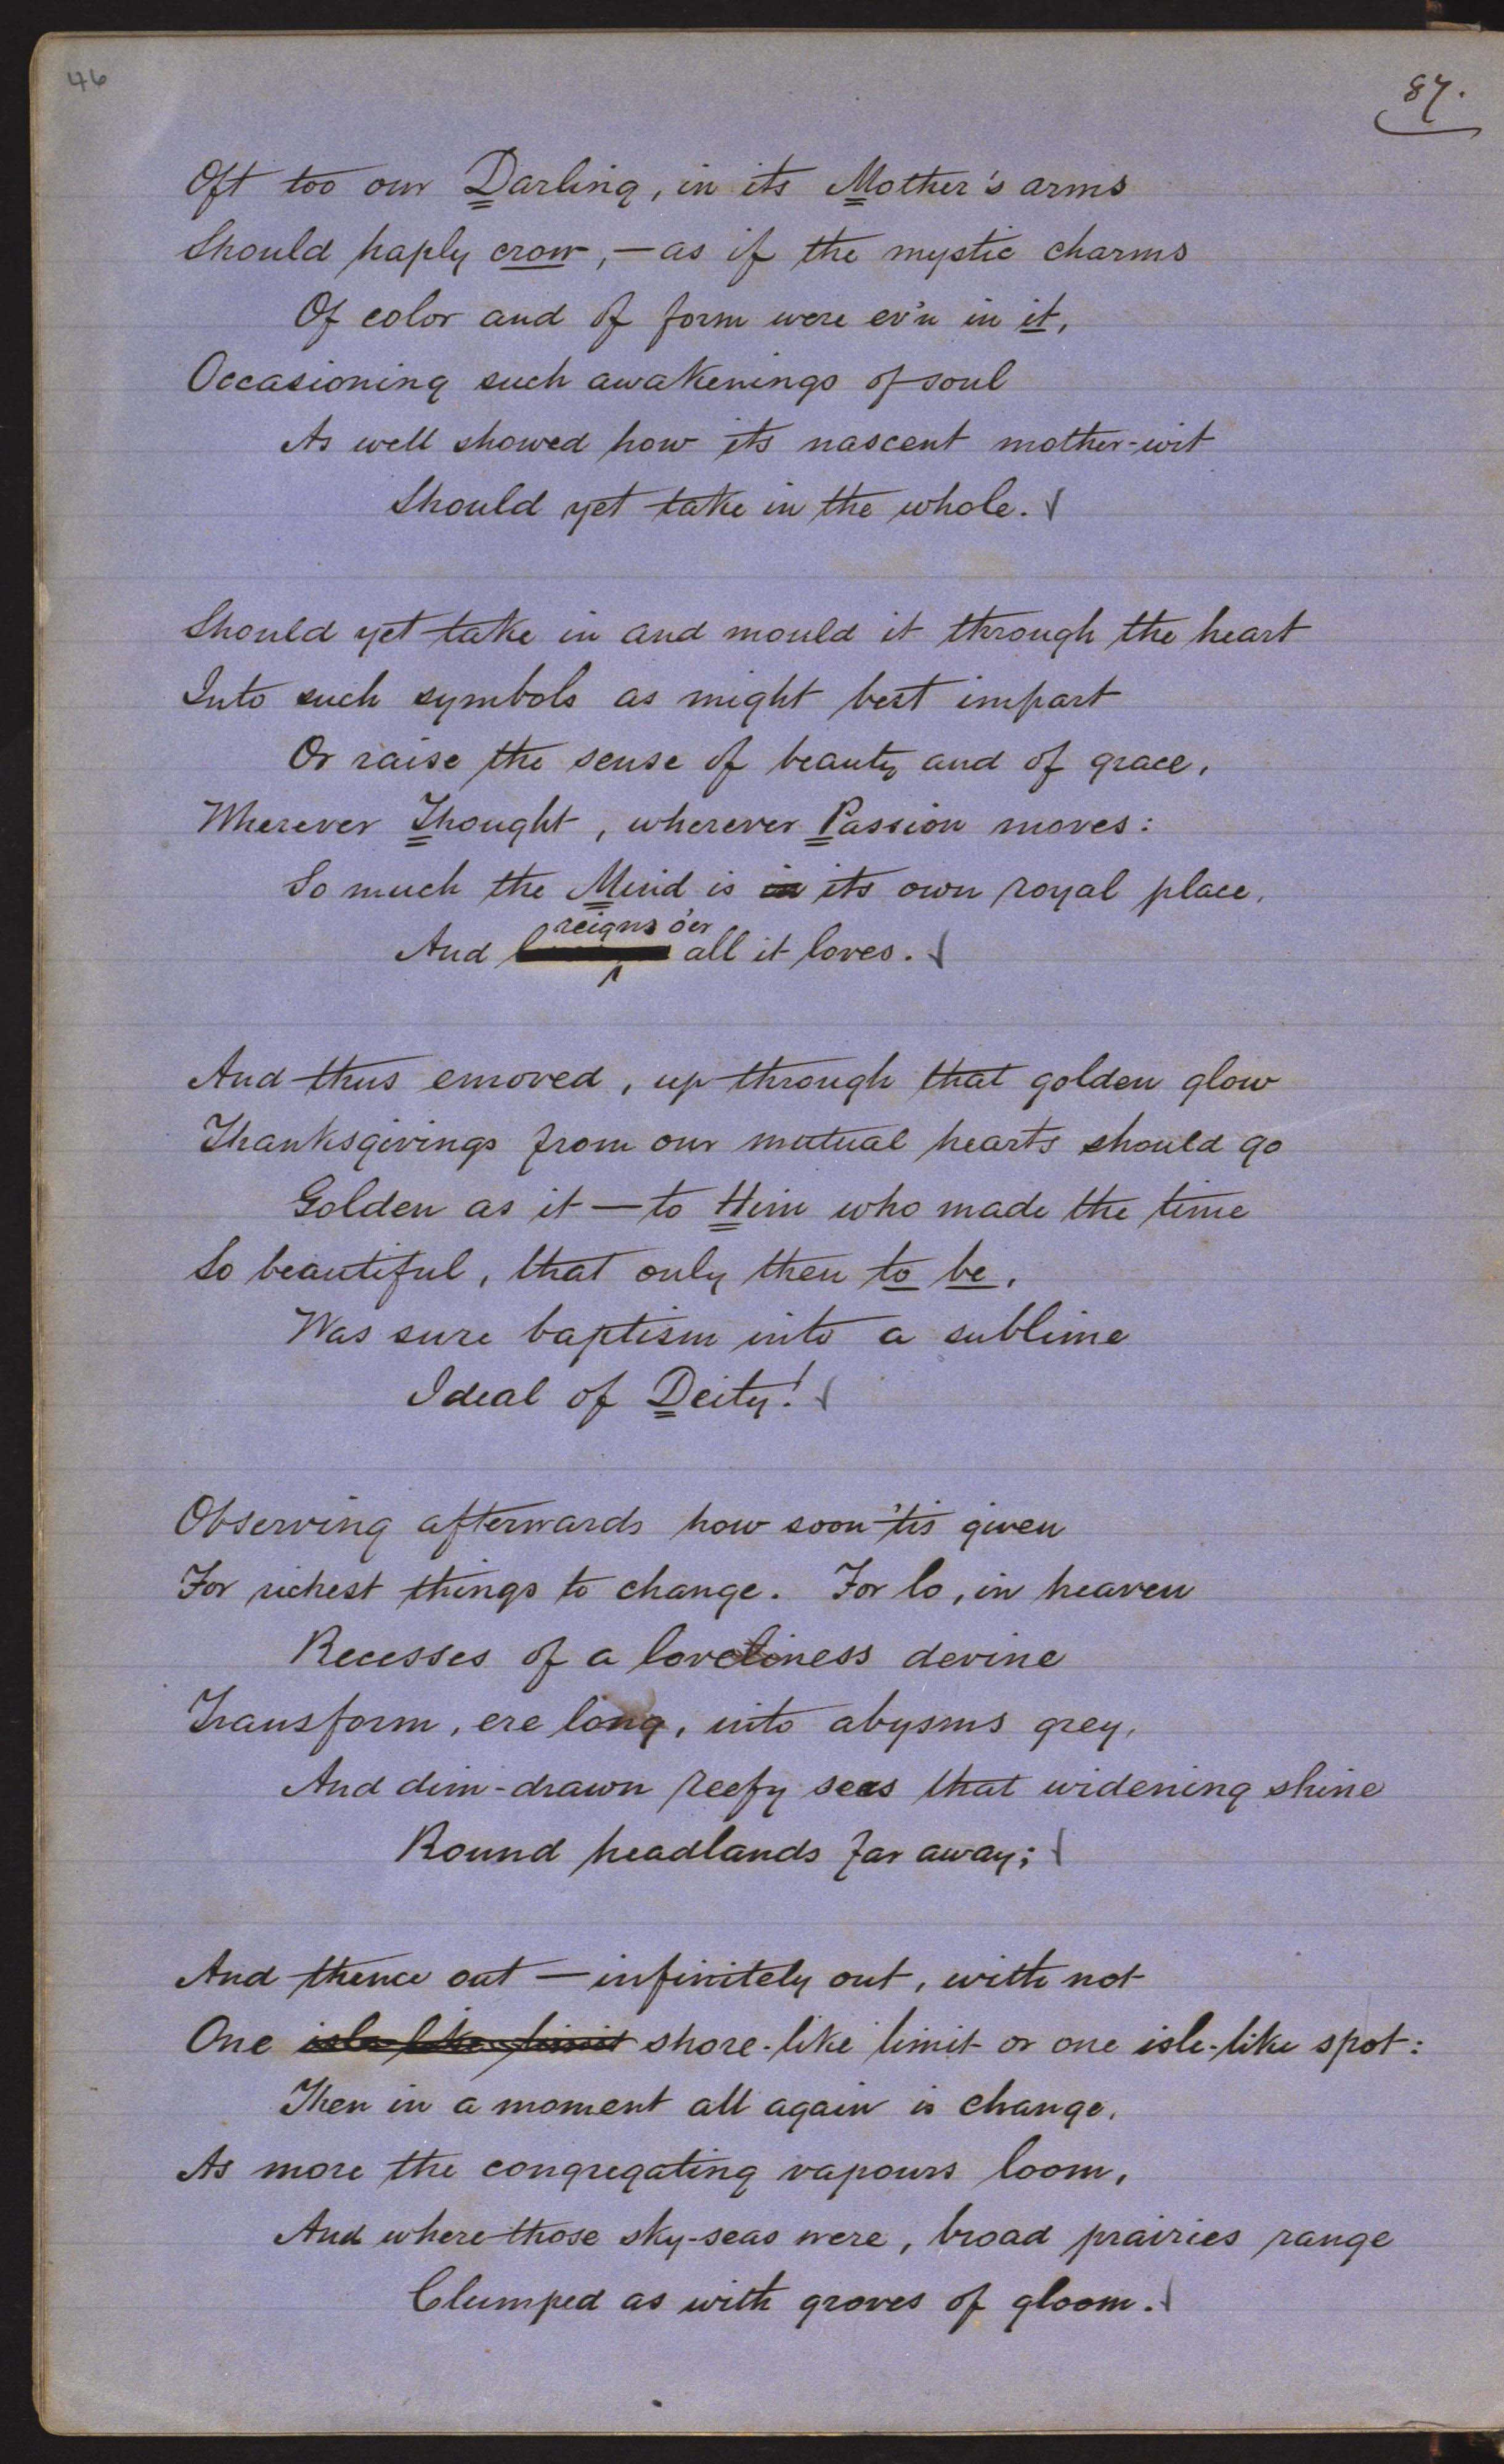 46
87.
Oft too our Darling, in its Mother's arms
Should haply crow, — as if the mystic charms
Of color and of form were ev'n in it,
Occasioning such awakenings of soul
As well showed how its nascent mother-wit
Should yet take in the whole.
Should yet take in and mould it through the heart
Into such symbols as might best impart
Or raise the sense of beauty and of grace,
Wherever Thought, wherever Passion moves:
So much the Mind is in its own royal place,
reigns o'er
And all it loves.
And thus emoved, up through that golden glow
Thanksgivings from our mutual hearts should go
Golden as it — to Him who made the time
So beautiful, that only then to be,
Was sure baptism into a sublime
Ideal of Deity!
Observing afterwards how soon 'tis given
For richest things to change. For lo, in heaven
Recesses of a loveliness devine
Transform, ere long, into abysms grey,
And dim-drawn reefy seas that widening shine
Round headlands far away;
And thence out — infinitely out, with not
One isle-like limit shore-like limit or one isle-like spot:
Then in a moment all again is change,
As more the congregating vapours loom,
And where those sky-seas were, broad prairies range
Clumped as with groves of gloom.